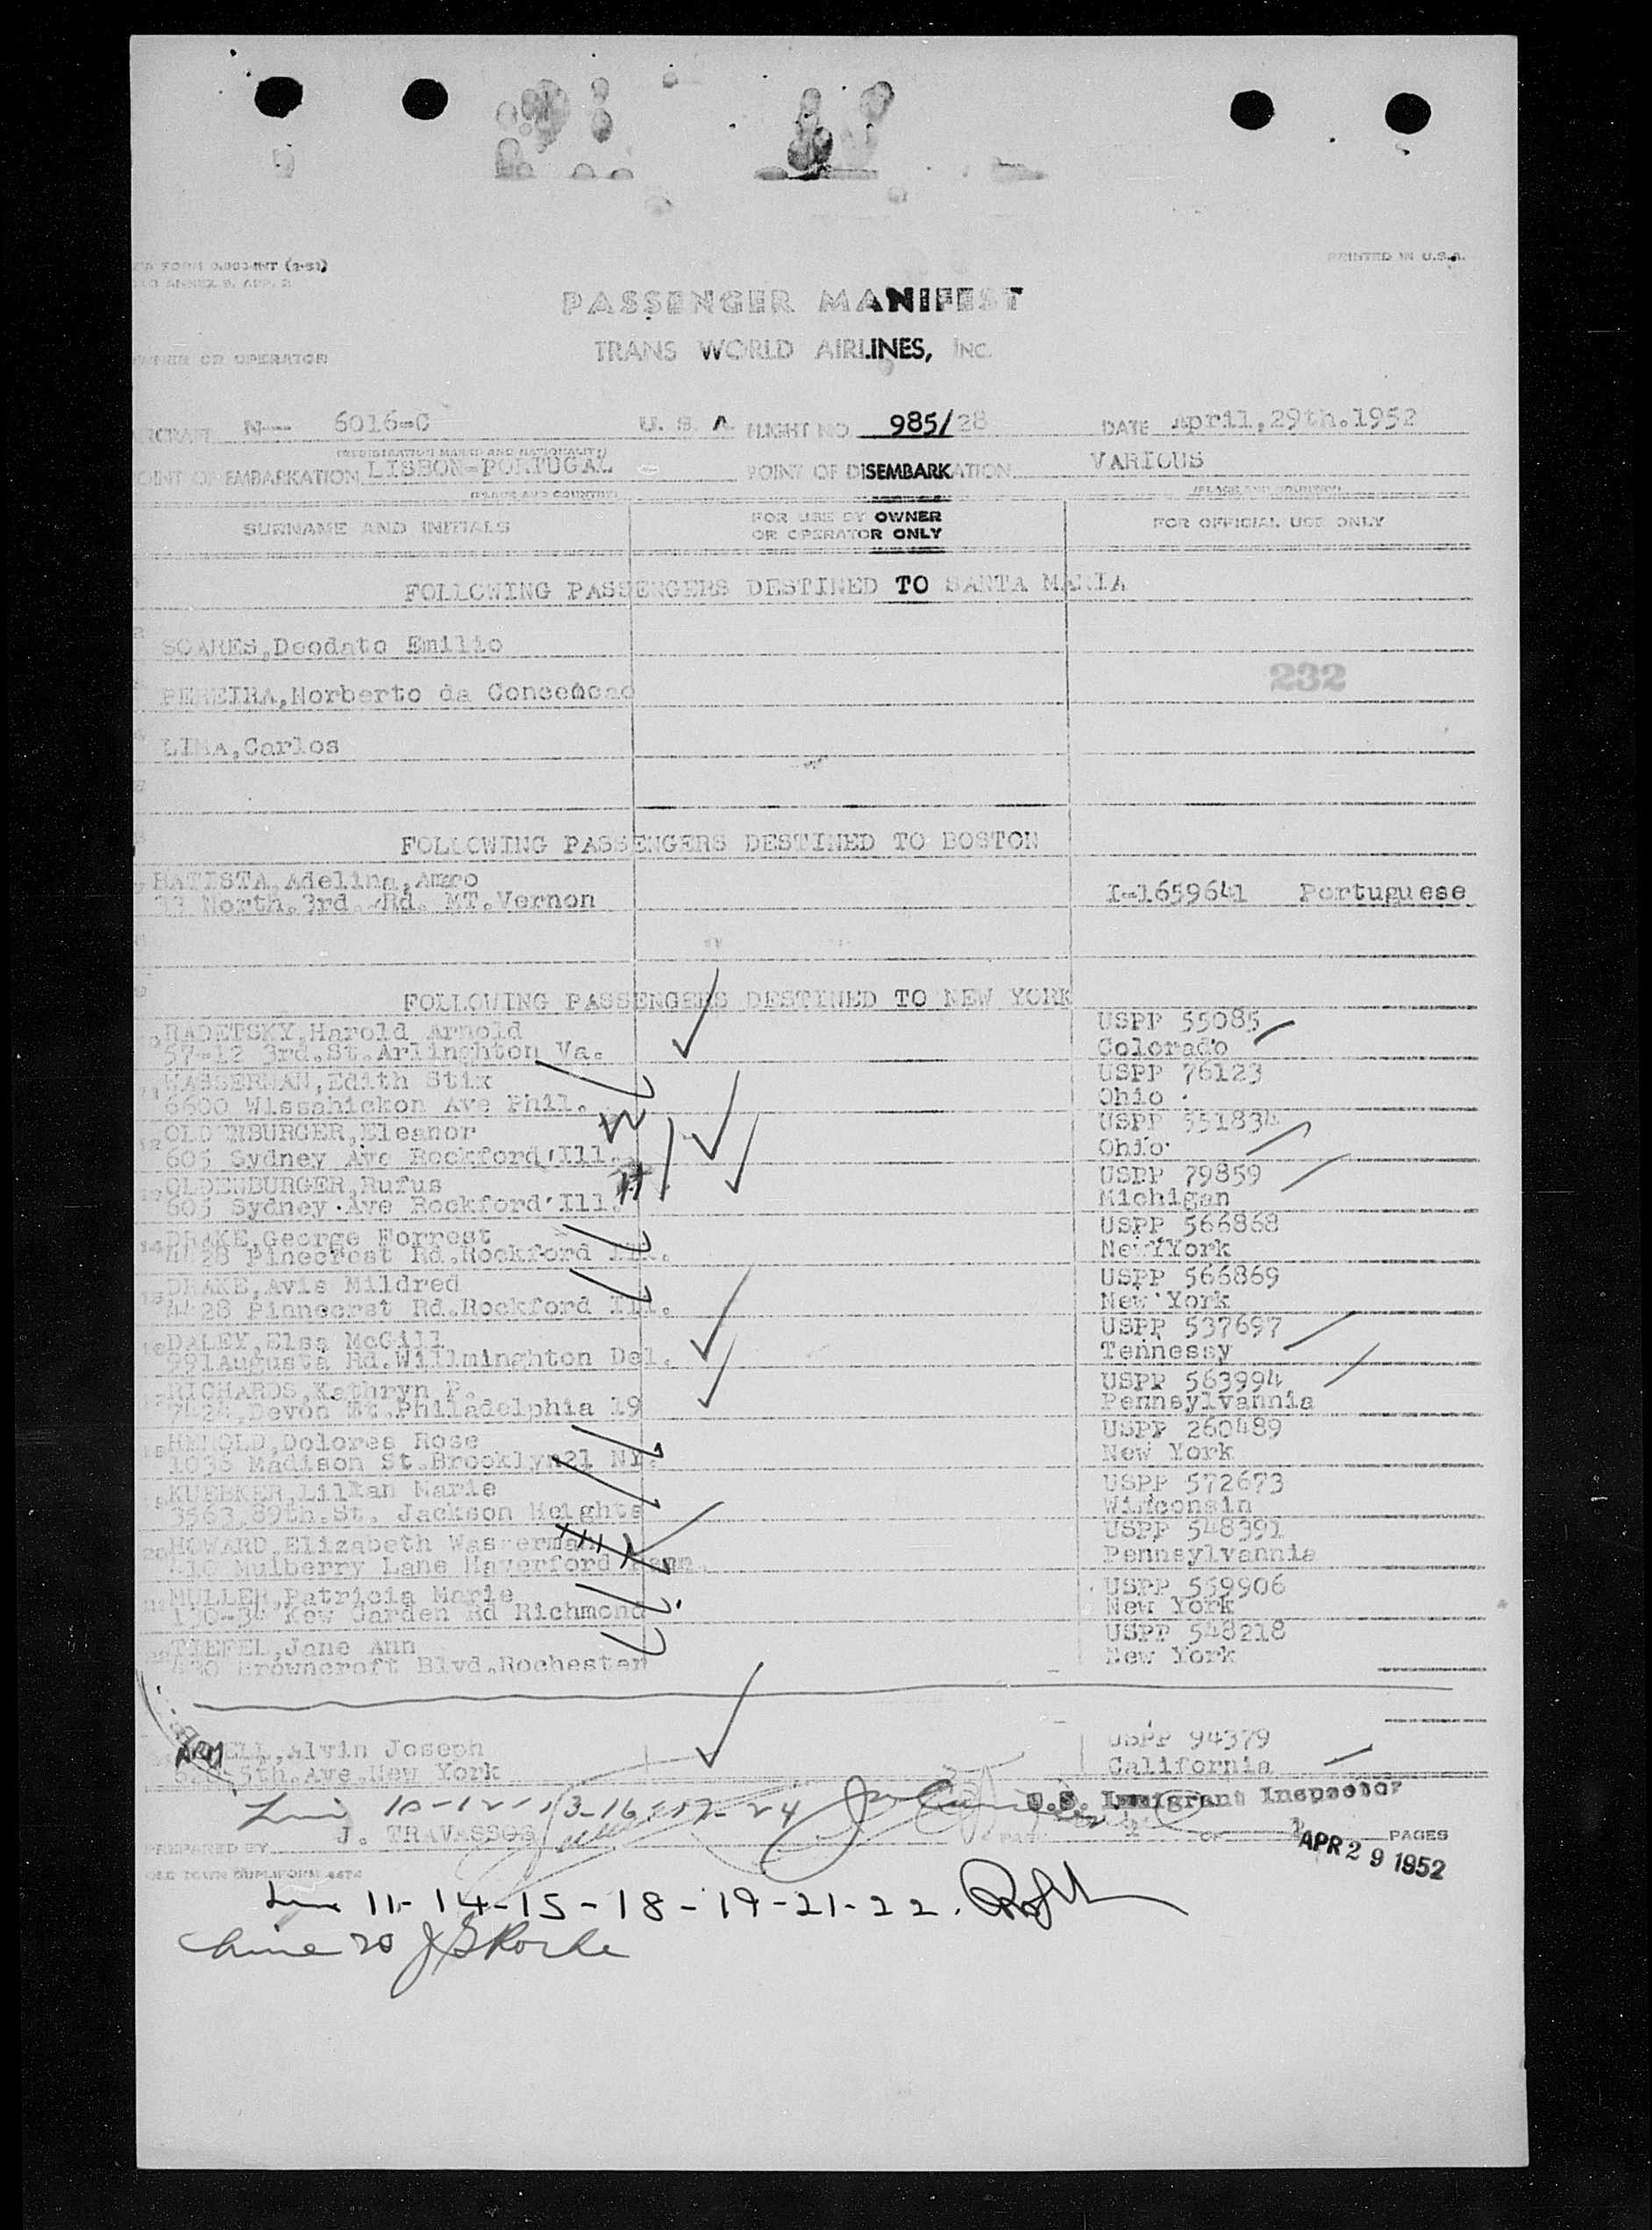 PRINTED IN U.S.A.
PASSENGER MANIFEST
TRANS WORLD AIRLINES, INC.
OWNER OR OPERATOR
AIRCRAFT N--- 6016-C U. S. A FLIGHT NO 985/28 DATE April,29th.1952
(REGISTRATION MARKS AND NATIONALITY)
POINT OF EMBARKATION LISBON-PORTUGAL POINT OF DISEMBARKATION VARIOUS
(PLACE AND COUNTRY) (PLACE AND COUNTRY)
SURNAME AND INITIALS FOR USE BY OWNER OR OPERATOR ONLY FOR OFFICIAL USE ONLY
FOLLOWING PASSENGERS DESTINED TO SANTA MARIA
SOARES,Deodato Emilio
232
PEREIRA,Norberto da
LIMA,Carlos
FOLLOWING PASSENGERS DESTINED TO BOSTON
BATISTA,Adelina,Amaro
33 North.3rd.-Rd. MT.Vernon I-1659641 Portuguese
FOLLOWING PASSENGERS DESTINED TO NEW YORK
10 RADETSKY,Harold Arnold USPP 55085
57-12 3rd.St.Arlinghton Va. Colorado
11 WASSERMAN,Edith Stix USPP 76123
6600 Wissahickon Ave Phil. Ohio
12 OLDENBURGER,Eleanor USPP 551834
605 Sydney Ave Rockford,Ill. Ohio
13 OLDENBURGER,Rufus USPP 79859
605 Sydney.Ave Rockford Ill. Michigan
14 DRAKE,George Forrest USPP 566868
4428 Pinecrest Rd.Rockford Ill. NewYYork
15 DRAKE,Avis Mildred USPP 566869
4428 Pinnecrst Rd.Rockford Ill. New York
16 DALEY,Elsa McGill USPP 537697
991Augusta Rd.Willminghton Del. Tennessy
17 RICHARDS,Kathryn P. USPP 563994
7424,Devon St.Philadelphia 19 Pennsylvannia
18 HEROLD,Dolores Rose USPP 260489
1036 Madison St.Brooklyn21 NY. New York
19 KUEBKER,Lillian Marie USPP 572673
3563,89th.St. Jackson Heights Winconsin
20 HOWARD,Elizabeth Wasserman USPP 548391
410 Mulberry Lane Haverford Penn. Pennsylvannia
21 MULLER,Patricia Marie USPP 559906
130-34 Kew Garden Rd Richmond New York
22 TIEFEL,Jane Ann USPP 548218
430 Browncroft Blvd.Rochester New York
Alvin Joseph USPP 94379
5th.Ave.New York California
ARM
10-12-13-16-17-24 U.S. Immigrant Inspector
PREPARED BY J. TRAVASSOS PAGE 1 OF 1 PAGES
APR 29 1952
Line 11-14-15-18-19-21-22.
Line 20 J S Roche